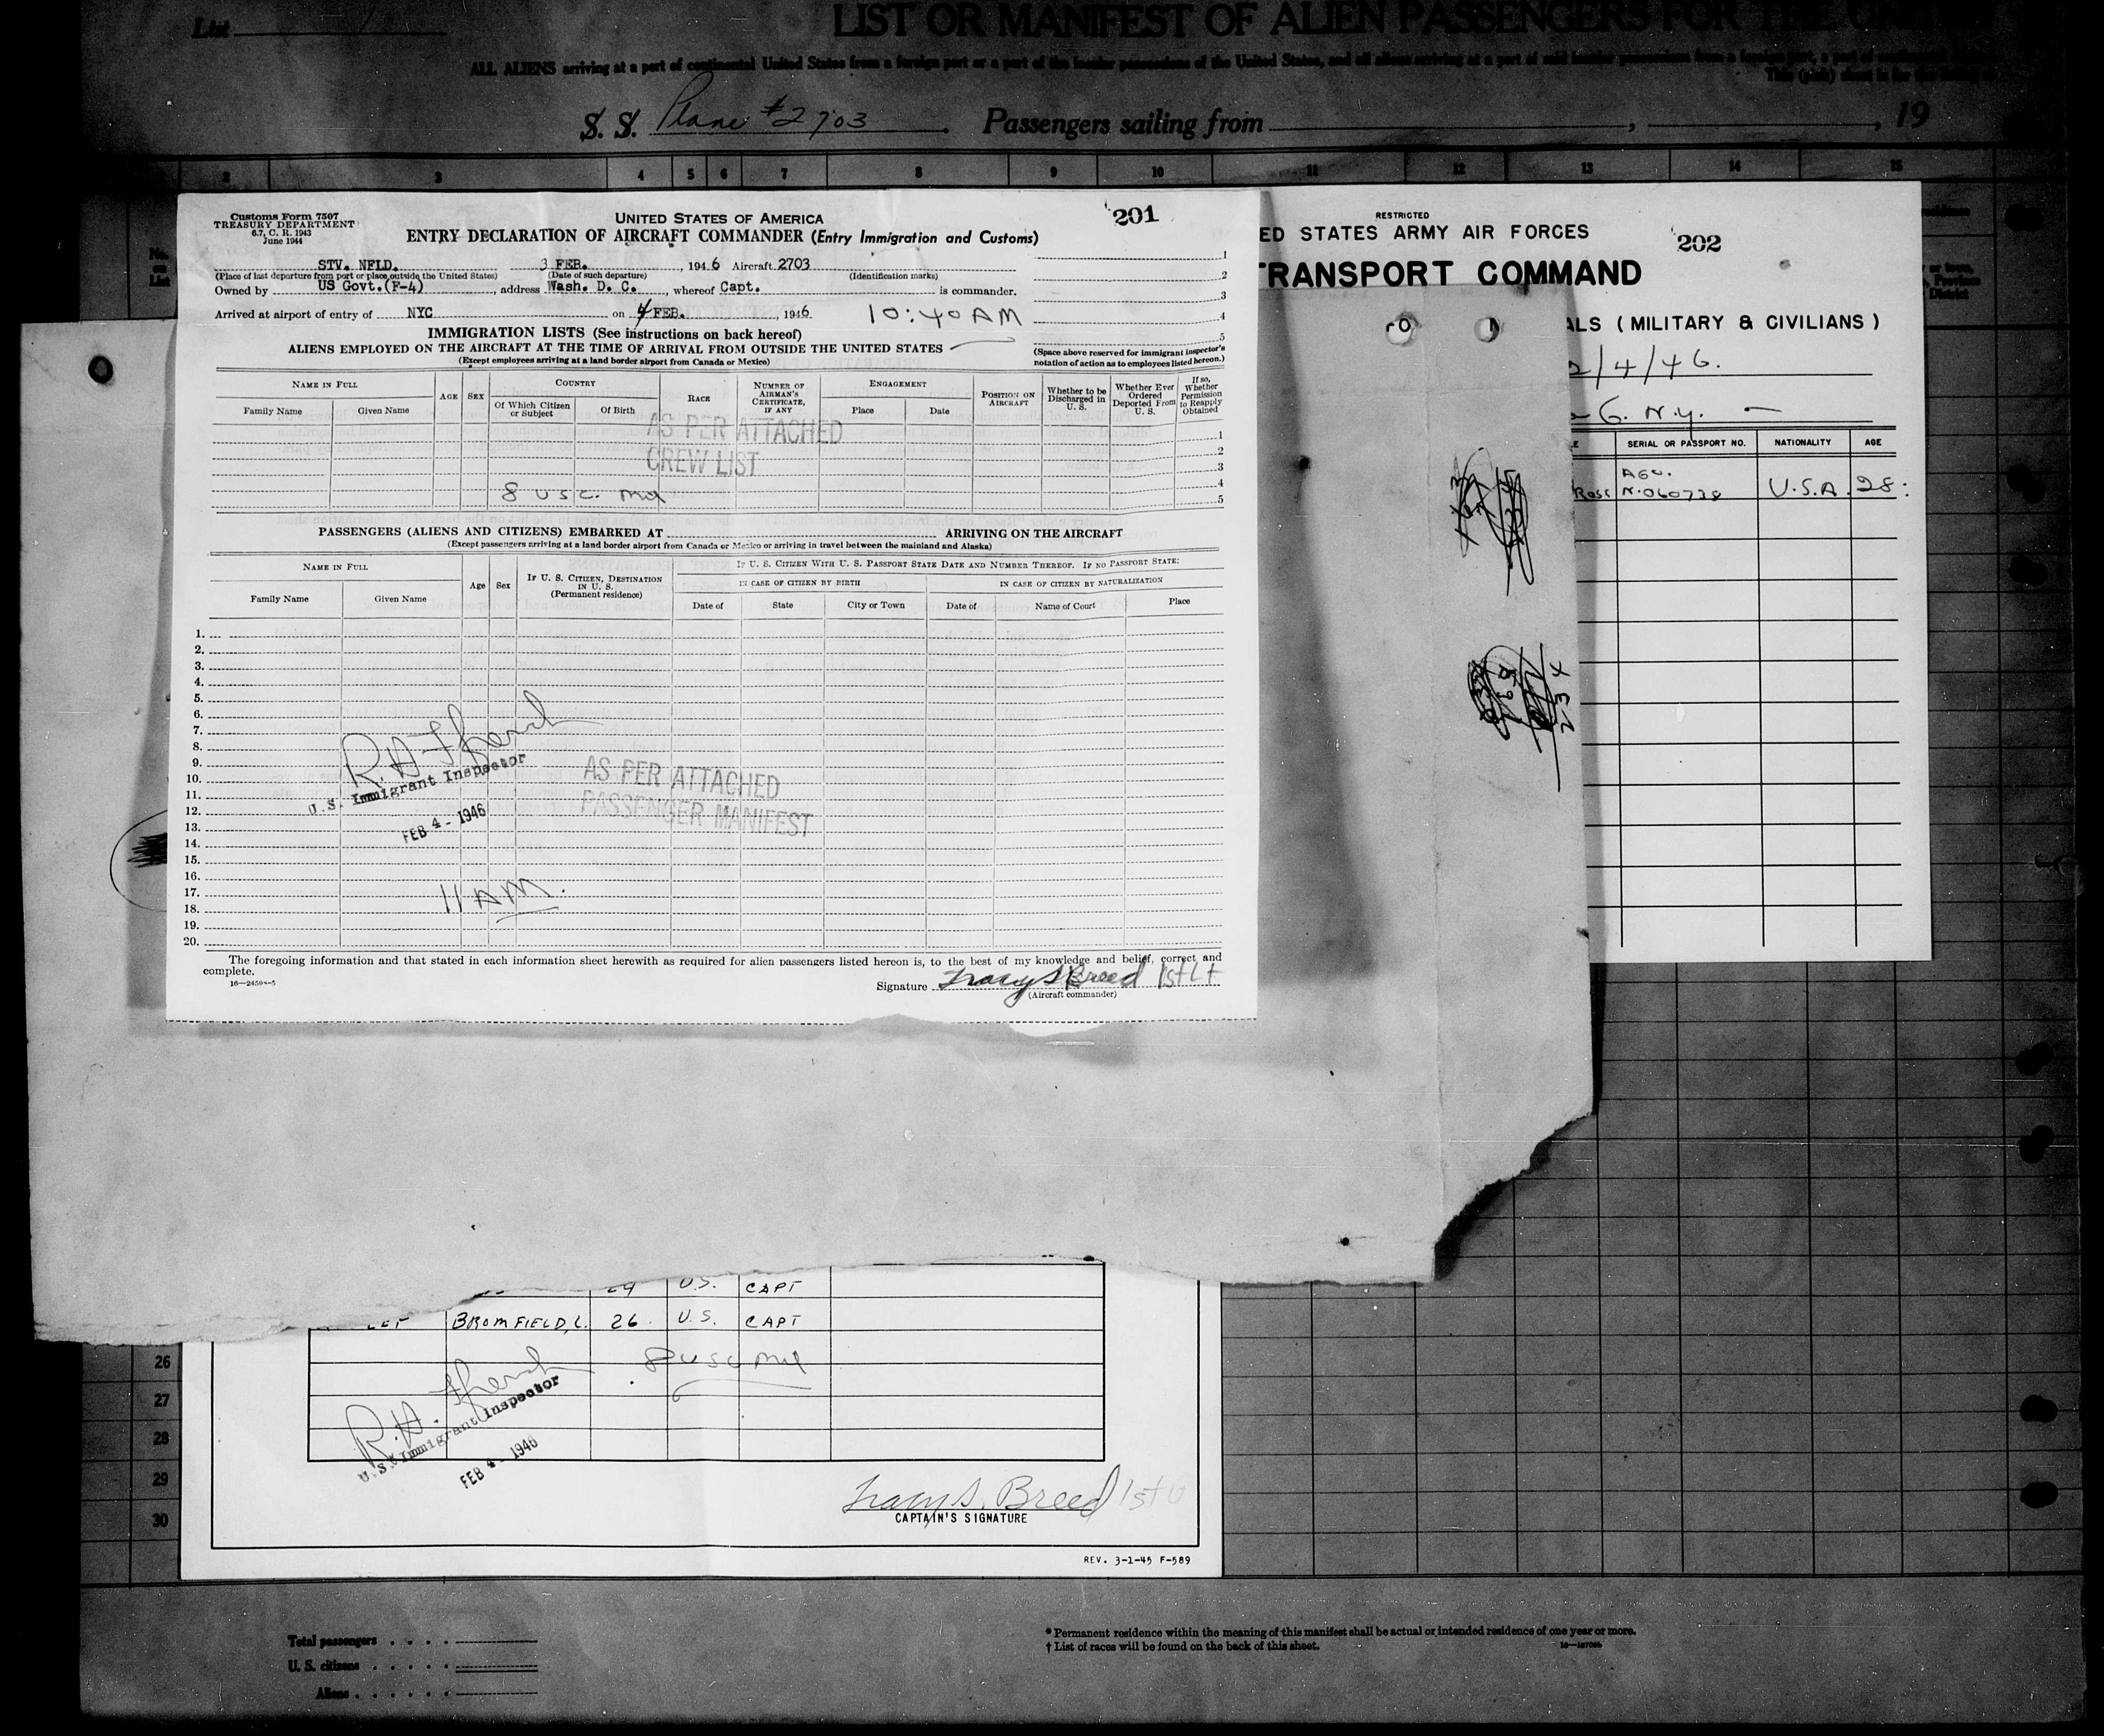 List
LIST OR MANIFEST OF ALIEN PASSENGERS FOR THE
ALL ALIENS arriving at a port of continental United States from a foreign port or a port of the insular possessions of the United States, and all aliens arriving at a port of said insular possessions from a foreign port, a port of continental
This (pink) sheet is for the listing of
S. S. Plane #2703 Passengers sailing from , , 19
2 3 4 5 6 7 8 9 10 11 12 13 14 15
Customs Form 7507
TREASURY DEPARTMENT
6.7, C. R. 1943
June 1944
UNITED STATES OF AMERICA
201
ENTRY DECLARATION OF AIRCRAFT COMMANDER (Entry Immigration and Customs)
STV. NFLD. 3 FEB. , 1946 Aircraft 2703
(Place of last departure from port or place outside the United States) (Date of such departure) (Identification marks)
Owned by US Govt.(F-4) , address Wash. D. C. , whereof Capt. is commander.
Arrived at airport of entry of NYC on 4 FEB. , 1946 10:40 AM
1
2
3
4
5
IMMIGRATION LISTS (See instructions on back hereof)
ALIENS EMPLOYED ON THE AIRCRAFT AT THE TIME OF ARRIVAL FROM OUTSIDE THE UNITED STATES
(Except employees arriving at a land border airport from Canada or Mexico)
(Space above reserved for immigrant inspector's notation of action as to employees listed hereon.)
NAME IN FULL
Family Name Given Name
AGE SEX
COUNTRY
Of Which Citizen or Subject Of Birth
RACE
NUMBER OF AIRMAN'S CERTIFICATE, IF ANY
ENGAGEMENT
Place Date
POSITION ON AIRCRAFT
Whether to be Discharged in U. S.
Whether Ever Ordered Deported From U. S.
If so, Whether Permission to Reapply Obtained
AS PER ATTACHED
CREW LIST
1
2
3
4
5
8 USC.
PASSENGERS (ALIENS AND CITIZENS) EMBARKED AT ARRIVING ON THE AIRCRAFT
(Except passengers arriving at a land border airport from Canada or Mexico or arriving in travel between the mainland and Alaska)
NAME IN FULL
Family Name Given Name
Age Sex
IF U. S. CITIZEN, DESTINATION IN U. S.
(Permanent residence)
IF U. S. CITIZEN WITH U. S. PASSPORT STATE DATE AND NUMBER THEREOF. IF NO PASSPORT STATE:
IN CASE OF CITIZEN BY BIRTH IN CASE OF CITIZEN BY NATURALIZATION
Date of State City or Town Date of Name of Court Place
1.
2.
3.
4.
5.
6.
7.
8.
9.
10.
11.
12.
13.
14.
15.
16.
17.
18.
19.
20.
U.S. Immigrant Inspector
FEB 4 - 1946
AS PER ATTACHED
PASSENGER MANIFEST
11 AM.
The foregoing information and that stated in each information sheet herewith as required for alien passengers listed hereon is, to the best of my knowledge and belief, correct and
complete.
Signature Tracy S Breed 1st Lt
(Aircraft commander)
RESTRICTED
ED STATES ARMY AIR FORCES
202
TRANSPORT COMMAND
ALS (MILITARY & CIVILIANS)
2/4/46.
G. N.Y.
SERIAL OR PASSPORT NO. NATIONALITY AGE
Ross AGO. N.060738 U.S.A. 28
234
U.S. CAPT
BROMFIELD, L. 26 U.S. CAPT
8 USC
U.S. Immigrant Inspector
FEB 4 - 1946
Tracy S. Breed 1st Lt
CAPTAIN'S SIGNATURE
REV. 3-1-45 F-589
26
27
28
29
30
Total passengers
U. S. citizens
Aliens
* Permanent residence within the meaning of this manifest shall be actual or intended residence of one year or more.
† List of races will be found on the back of this sheet.